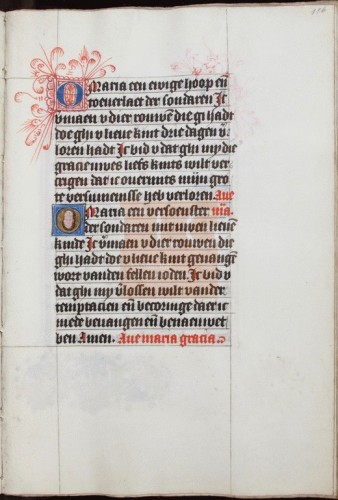 116
O Maria een ewige hoop eñ
toeuerlaet der sondaren Ic
vmaen v dier rouwen die gi hadt
doe ghi v lieue kint drie dagen v
loren hadt Ic bid v dat ghi my die
gracie uwes liefs kints wilt ver
crigen dat ic ouermits mijn gro
te versumenisse heb verloren. Aue
O Maria een versoenster ma.
der sondaren mit uwen lieuen
kinde Ic vmaen v dier rouwen die
ghi hadt doe v lieue kint geuangē
wort vanden fellen ioden. Ic bid v
dat ghi my vlossen wilt vander
temptacien eñ becoringe daer ic
mede beuangen eñ benaemt
ben Amen. Aue maria gracia